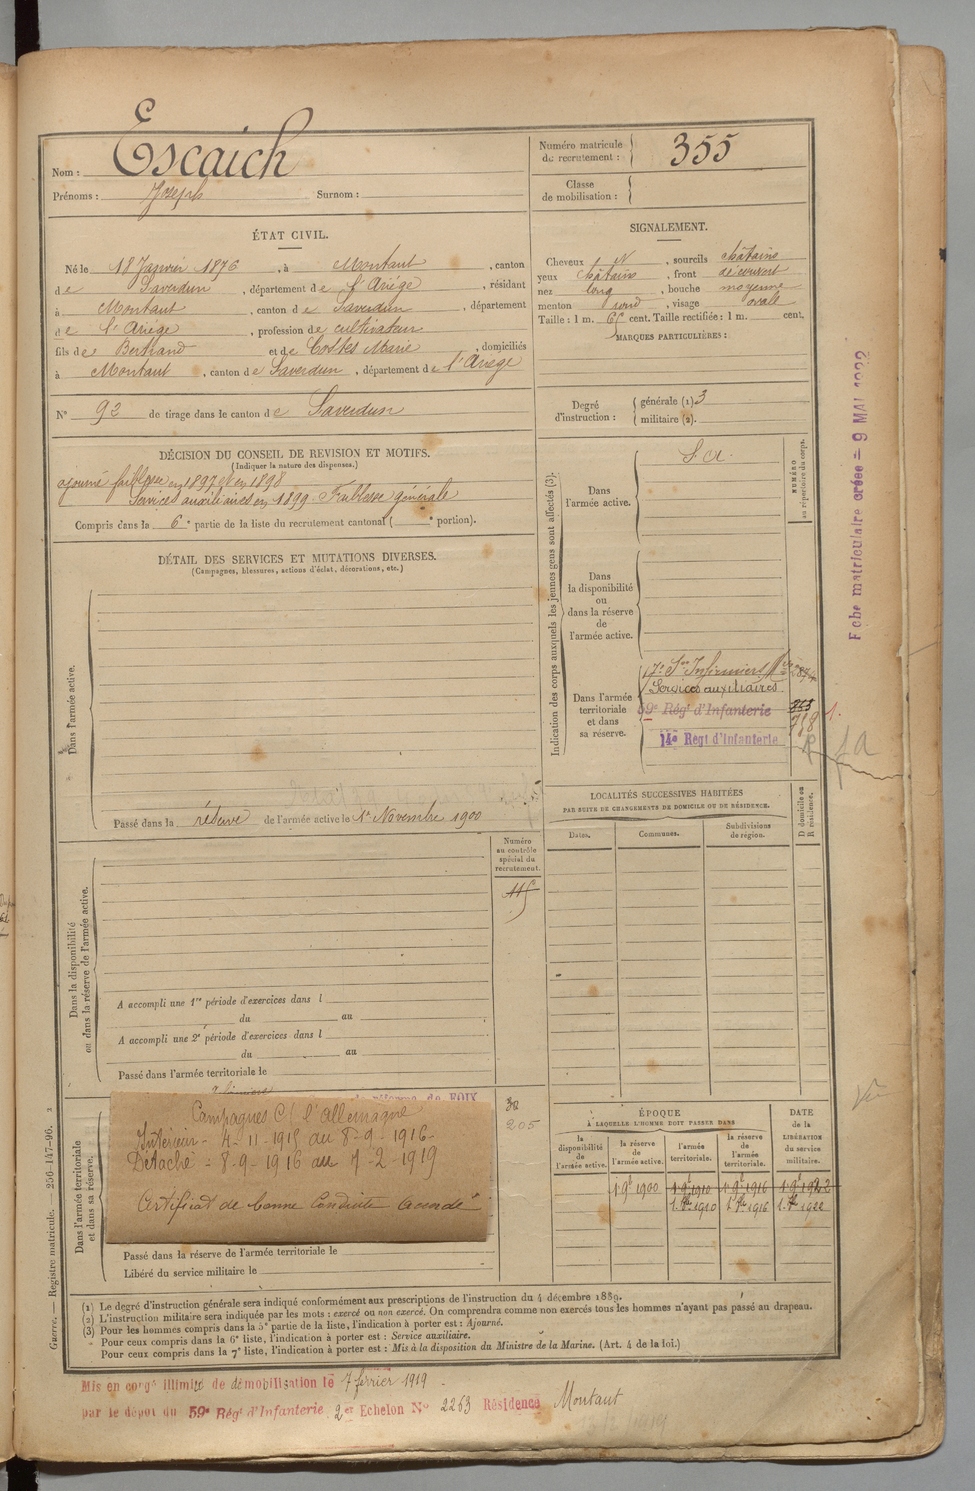 Nom : Escaich
Prénoms : Joseph Surnom :
Numéro matricule de recrutement : 355
Classe de mobilisation :
ÉTAT CIVIL.
Né le 18 Janvier 1876, à Montaut, canton
de Saverdun, département de l'Ariège, résidant
à Montaut, canton de Saverdun, département
de l'Ariège, profession de cultivateur
fils de Bertrand et de Costes Marie, domiciliés
à Montaut, canton de Saverdun, département de l'Ariège
N° 92 de tirage dans le canton de Saverdun
SIGNALEMENT.
Cheveux N, sourcils châtains
yeux châtains, front découvert
nez long, bouche moyenne
menton rond, visage ovale
Taille : 1 m. 65 cent. Taille rectifiée : 1 m. cent.
MARQUES PARTICULIÈRES :
Degré d'instruction : générale (1) 3
militaire (2).
DÉCISION DU CONSEIL DE REVISION ET MOTIFS.
(Indiquer la nature des dispenses.)
ajourné faiblesse en 1897 et en 1898
Services auxiliaires en 1899. Faiblesse générale
Compris dans la 6e partie de la liste du recrutement cantonal ( e portion).
DÉTAIL DES SERVICES ET MUTATIONS DIVERSES.
(Campagnes, blessures, actions d'éclat, décorations, etc.)
Dans l'armée active.
Passé dans la réserve de l'armée active le 1er Novembre 1900
Indication des corps auxquels les jeunes gens sont affectés (3).
Dans l'armée active.
S. A.
NUMÉRO au répertoire du corps.
Dans la disponibilité ou dans la réserve de l'armée active.
Dans l'armée territoriale et dans sa réserve.
17e Son Infirmiers
Services auxiliaires
59e Régt d'Infanterie
14e Régt d'Infanterie
Fiche matriculaire créée = 9 MAI
LOCALITÉS SUCCESSIVES HABITÉES
PAR SUITE DE CHANGEMENTS DE DOMICILE OU DE RÉSIDENCE.
D domicile ou R résidence.
Dates. Communes. Subdivisions de région.
Dans la disponibilité ou dans la réserve de l'armée active.
Numéro au contrôle spécial du recrutement.
115
A accompli une 1re période d'exercices dans l
du au
A accompli une 2e période d'exercices dans l
du au
Passé dans l'armée territoriale le
Dans l'armée territoriale et dans sa réserve.
de réforme de FOIX
Campagnes C/ l'Allemagne
Intérieur - 4-11-1915 au 8-9-1916-
Détaché - 8-9-1916 au 7-2-1919
Certificat de bonne Conduite accordé
205
Passé dans la réserve de l'armée territoriale le
Libéré du service militaire le
ÉPOQUE
À LAQUELLE L'HOMME DOIT PASSER DANS
DATE de la LIBÉRATION du service militaire.
la disponibilité de l'armée active. la réserve de l'armée active. l'armée territoriale. la réserve de l'armée territoriale.
1 9e 1900 1 9e 1910 1 9e 1916 1 9e 1922
1910 1916 1922
(1) Le degré d'instruction générale sera indiqué conformément aux prescriptions de l'instruction du 4 décembre 1889.
(2) L'instruction militaire sera indiquée par les mots : exercé ou non exercé. On comprendra comme non exercés tous les hommes n'ayant pas passé au drapeau.
(3) Pour les hommes compris dans la 5e partie de la liste, l'indication à porter est : Ajourné.
Pour ceux compris dans la 6e liste, l'indication à porter est : Service auxiliaire.
Pour ceux compris dans la 7e liste, l'indication à porter est : Mis à la disposition du Ministre de la Marine. (Art. 4 de la loi.)
Guerre. — Registre matricule. — 256-147-96.
Mis en congé illimité de démobilisation le 7 février 1919
par le dépôt du 59e Régt d'Infanterie 2e Echelon N° 2263 Résidence Montaut